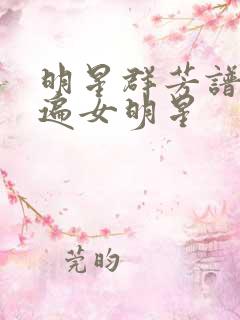 明星群芳譜
遍女明星
莞昀